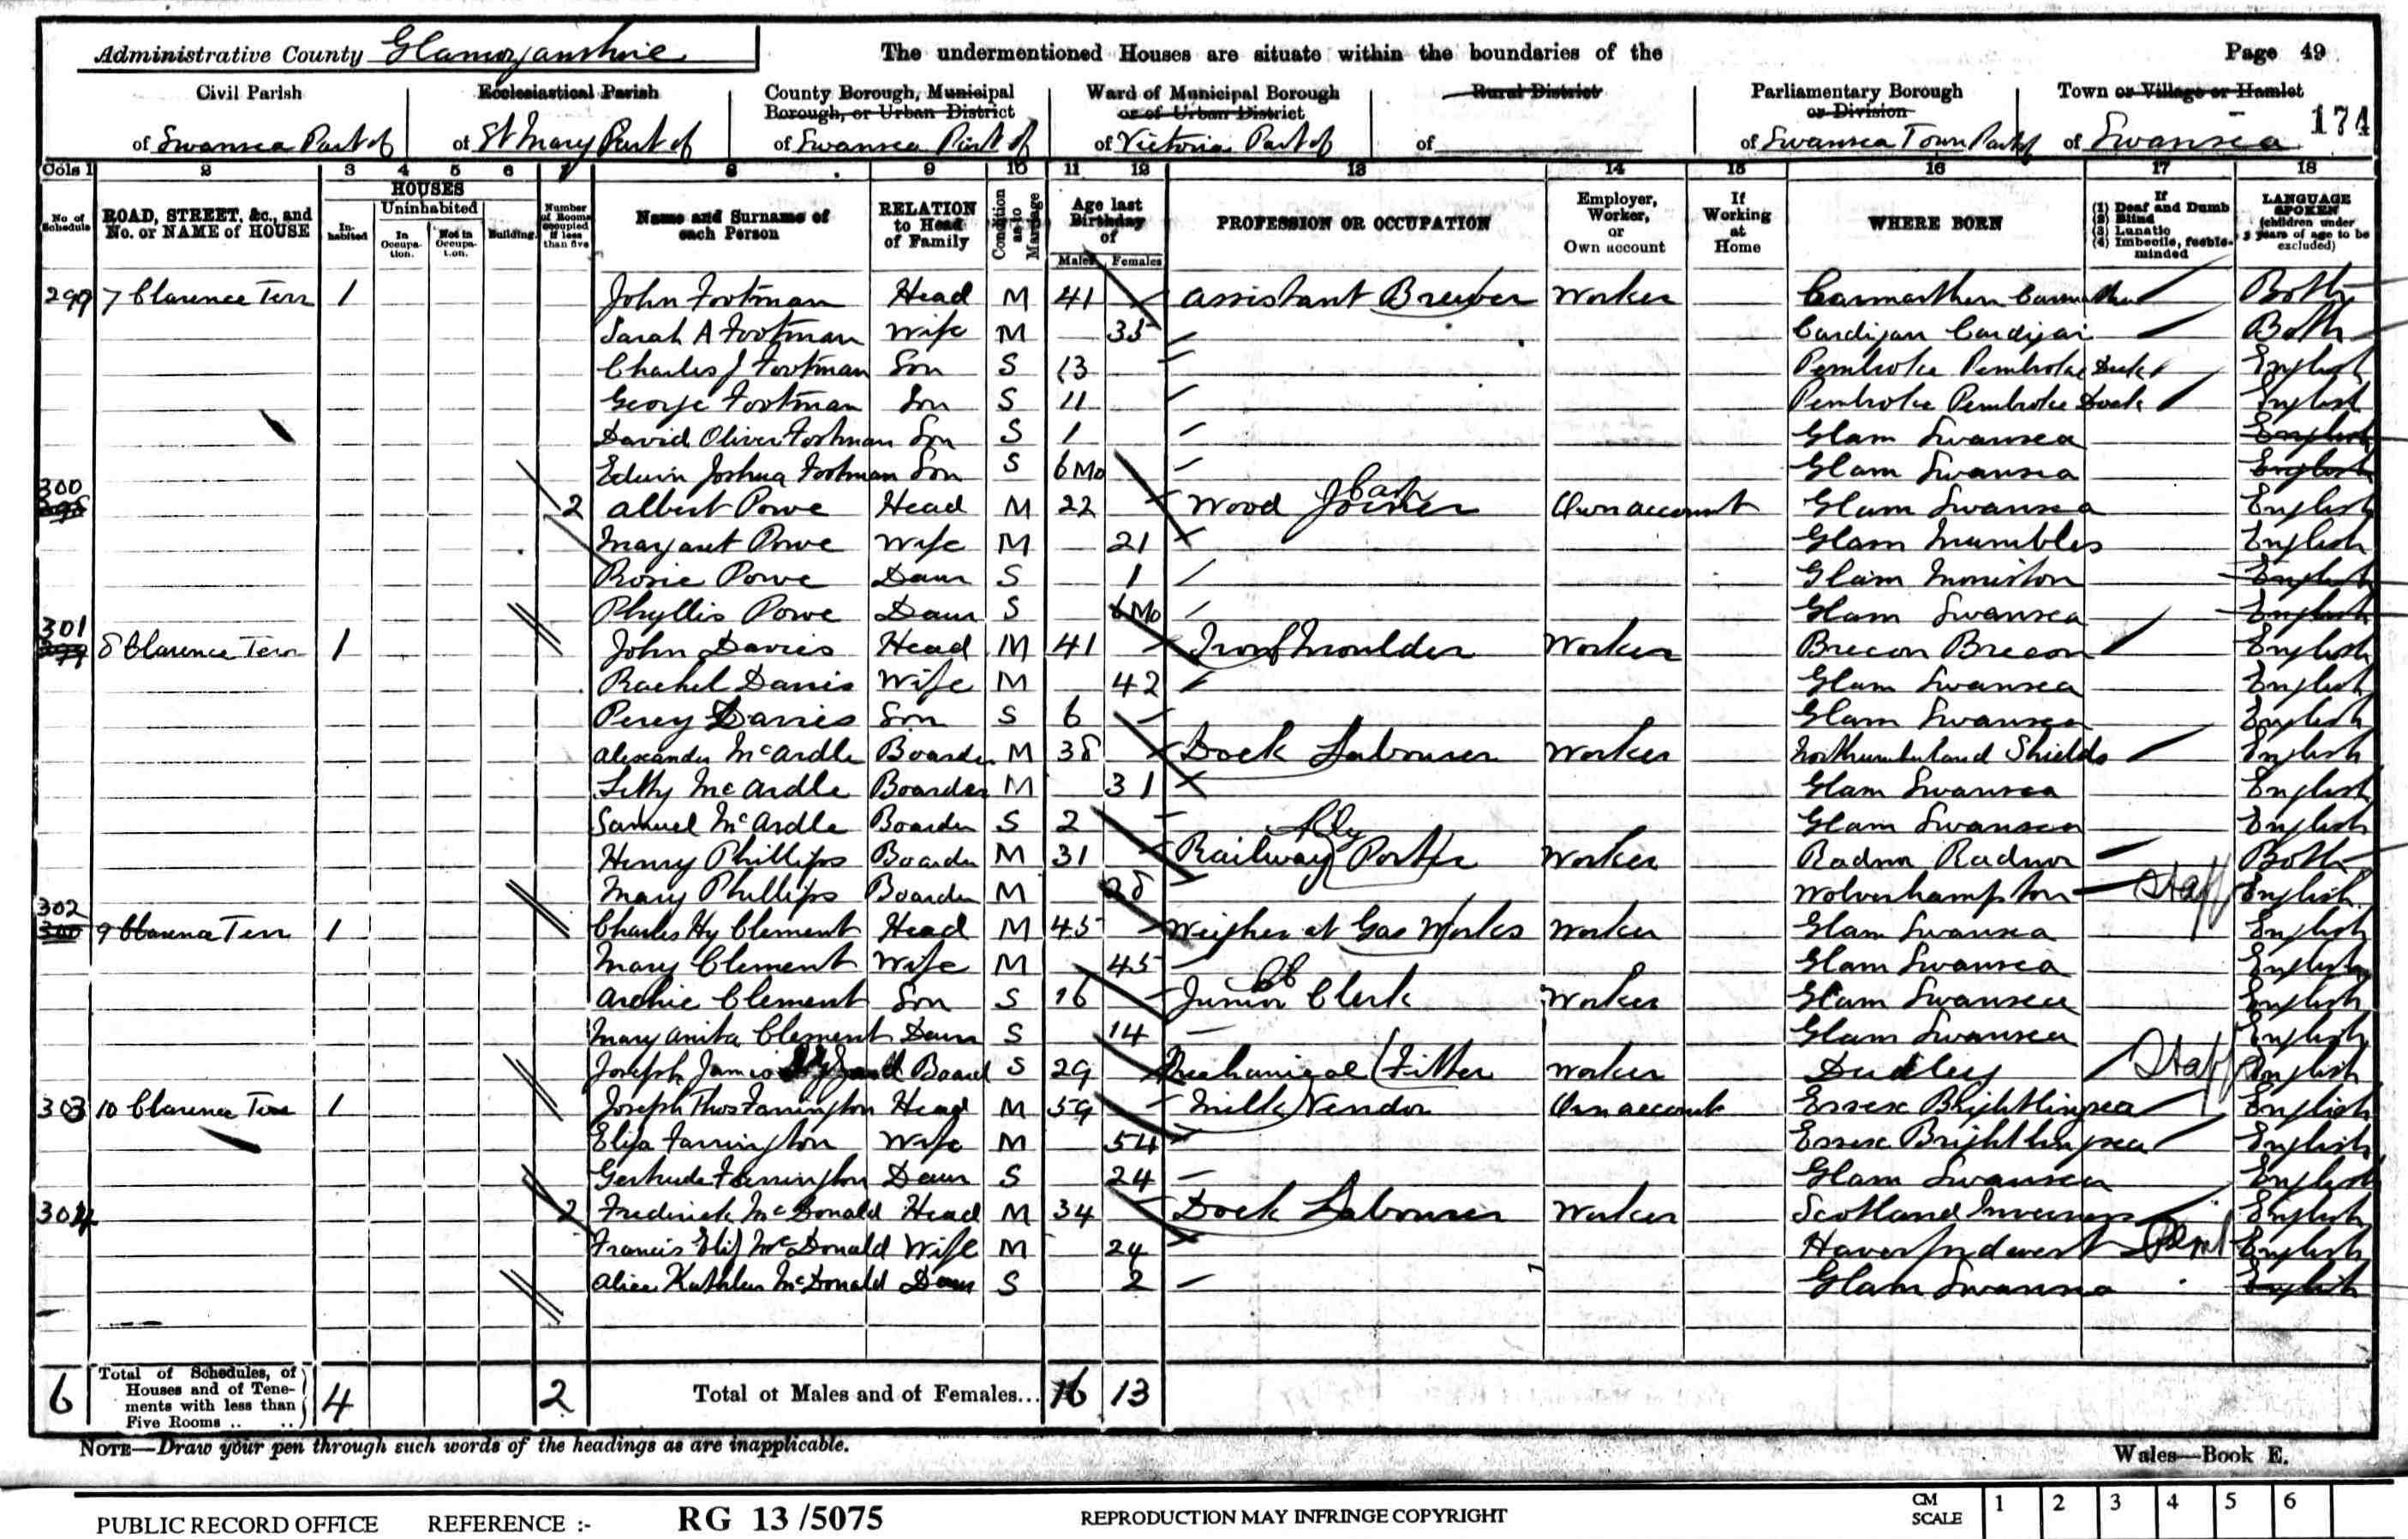 Administrative County Glamorganshire The undermentioned Houses are situate within the boundaries of the Page 49
Civil Parish Ecclesiastical Parish County Borough, Municipal Borough, or Urban District Ward of Municipal Borough or of Urban District Rural District Parliamentary Borough or Division Town or Village or Hamlet
174
of Swansea Part of of St Mary Part of of Swansea Part of of Victoria Part of of of Swansea Town Part of of Swansea
Cols 1 2 3 4 5 6 7 8 9 10 11 12 13 14 15 16 17 18
No of Schedule ROAD, STREET, &c., and No. or NAME of HOUSE HOUSES Inhabited Uninhabited In Occupation. Not in Occupation. Building. Number of Rooms occupied if less than five Name and Surname of each Person RELATION to Head of Family Condition as to Marriage Age last Birthday of Males Females PROFESSION OR OCCUPATION Employer, Worker, or Own account If Working at Home WHERE BORN If (1) Deaf and Dumb (2) Blind (3) Lunatic (4) Imbecile, feeble-minded LANGUAGE SPOKEN (children under 3 years of age to be excluded)
299 7 Clarence Terr 1 John Footman Head M 41 Assistant Brewer Worker Carmarthen Both
Sarah A Footman Wife M 35 Cardigan Cardigan Both
Charles J Footman Son S 13 Pembroke Pembroke Dock English
George Footman Son S 11 Pembroke Pembroke Dock English
David Oliver Footman Son S 1 Glam Swansea English
Edwin Joshua Footman Son S 6 Mo Glam Swansea English
300 2 Albert Powe Head M 22 Wood Joiner Own account Glam Swansea English
Margaret Powe Wife M 21 Glam Mumbles English
Rosie Powe Daur S 1 Glam Morriston English
Phyllis Powe Daur S 6 Mo Glam Swansea English
301 8 Clarence Terr 1 John Davies Head M 41 Iron Moulder Worker Brecon Brecon English
Rachel Davies Wife M 42 Glam Swansea English
Percy Davies Son S 6 Glam Swansea English
Alexander McArdle Boarder M 38 Dock Labourer Worker Northumberland Shields English
Letty McArdle Boarder M 31 Glam Swansea English
Samuel McArdle Boarder S 2 Glam Swansea English
Henry Phillips Boarder M 31 Railway Porter Worker Radnor Radnor Both
Mary Phillips Boarder M 28 Wolverhampton Staff English
302 9 Clarence Terr 1 Charles Hy Clement Head M 45 Weigher at Gas Works Worker Glam Swansea English
Mary Clement Wife M 45 Glam Swansea English
Archie Clement Son S 16 Junior Clerk Worker Glam Swansea English
Mary Anita Clement Daur S 14 Glam Swansea English
Joseph James Board S 29 Mechanical Fitter Worker Dudley Staff English
303 10 Clarence Terr 1 Joseph Thos Farrington Head M 59 Milk Vendor Own account Essex Brightlingsea English
Eliza Farrington Wife M 54 Essex Brightlingsea English
Gertrude Farrington Daur S 24 Glam Swansea English
304 2 Frederick McDonald Head M 34 Dock Labourer Worker Scotland Inverness English
Francis Eliz McDonald Wife M 24 Haverfordwest Pem English
Alice Kathleen McDonald Daur S 2 Glam Swansea English
6 Total of Schedules, of Houses and of Tenements with less than Five Rooms .. .. 4 2 Total of Males and of Females... 16 13
NOTE—Draw your pen through such words of the headings as are inapplicable. Wales—Book E.
PUBLIC RECORD OFFICE REFERENCE :- RG 13 /5075 REPRODUCTION MAY INFRINGE COPYRIGHT CM SCALE 1 2 3 4 5 6